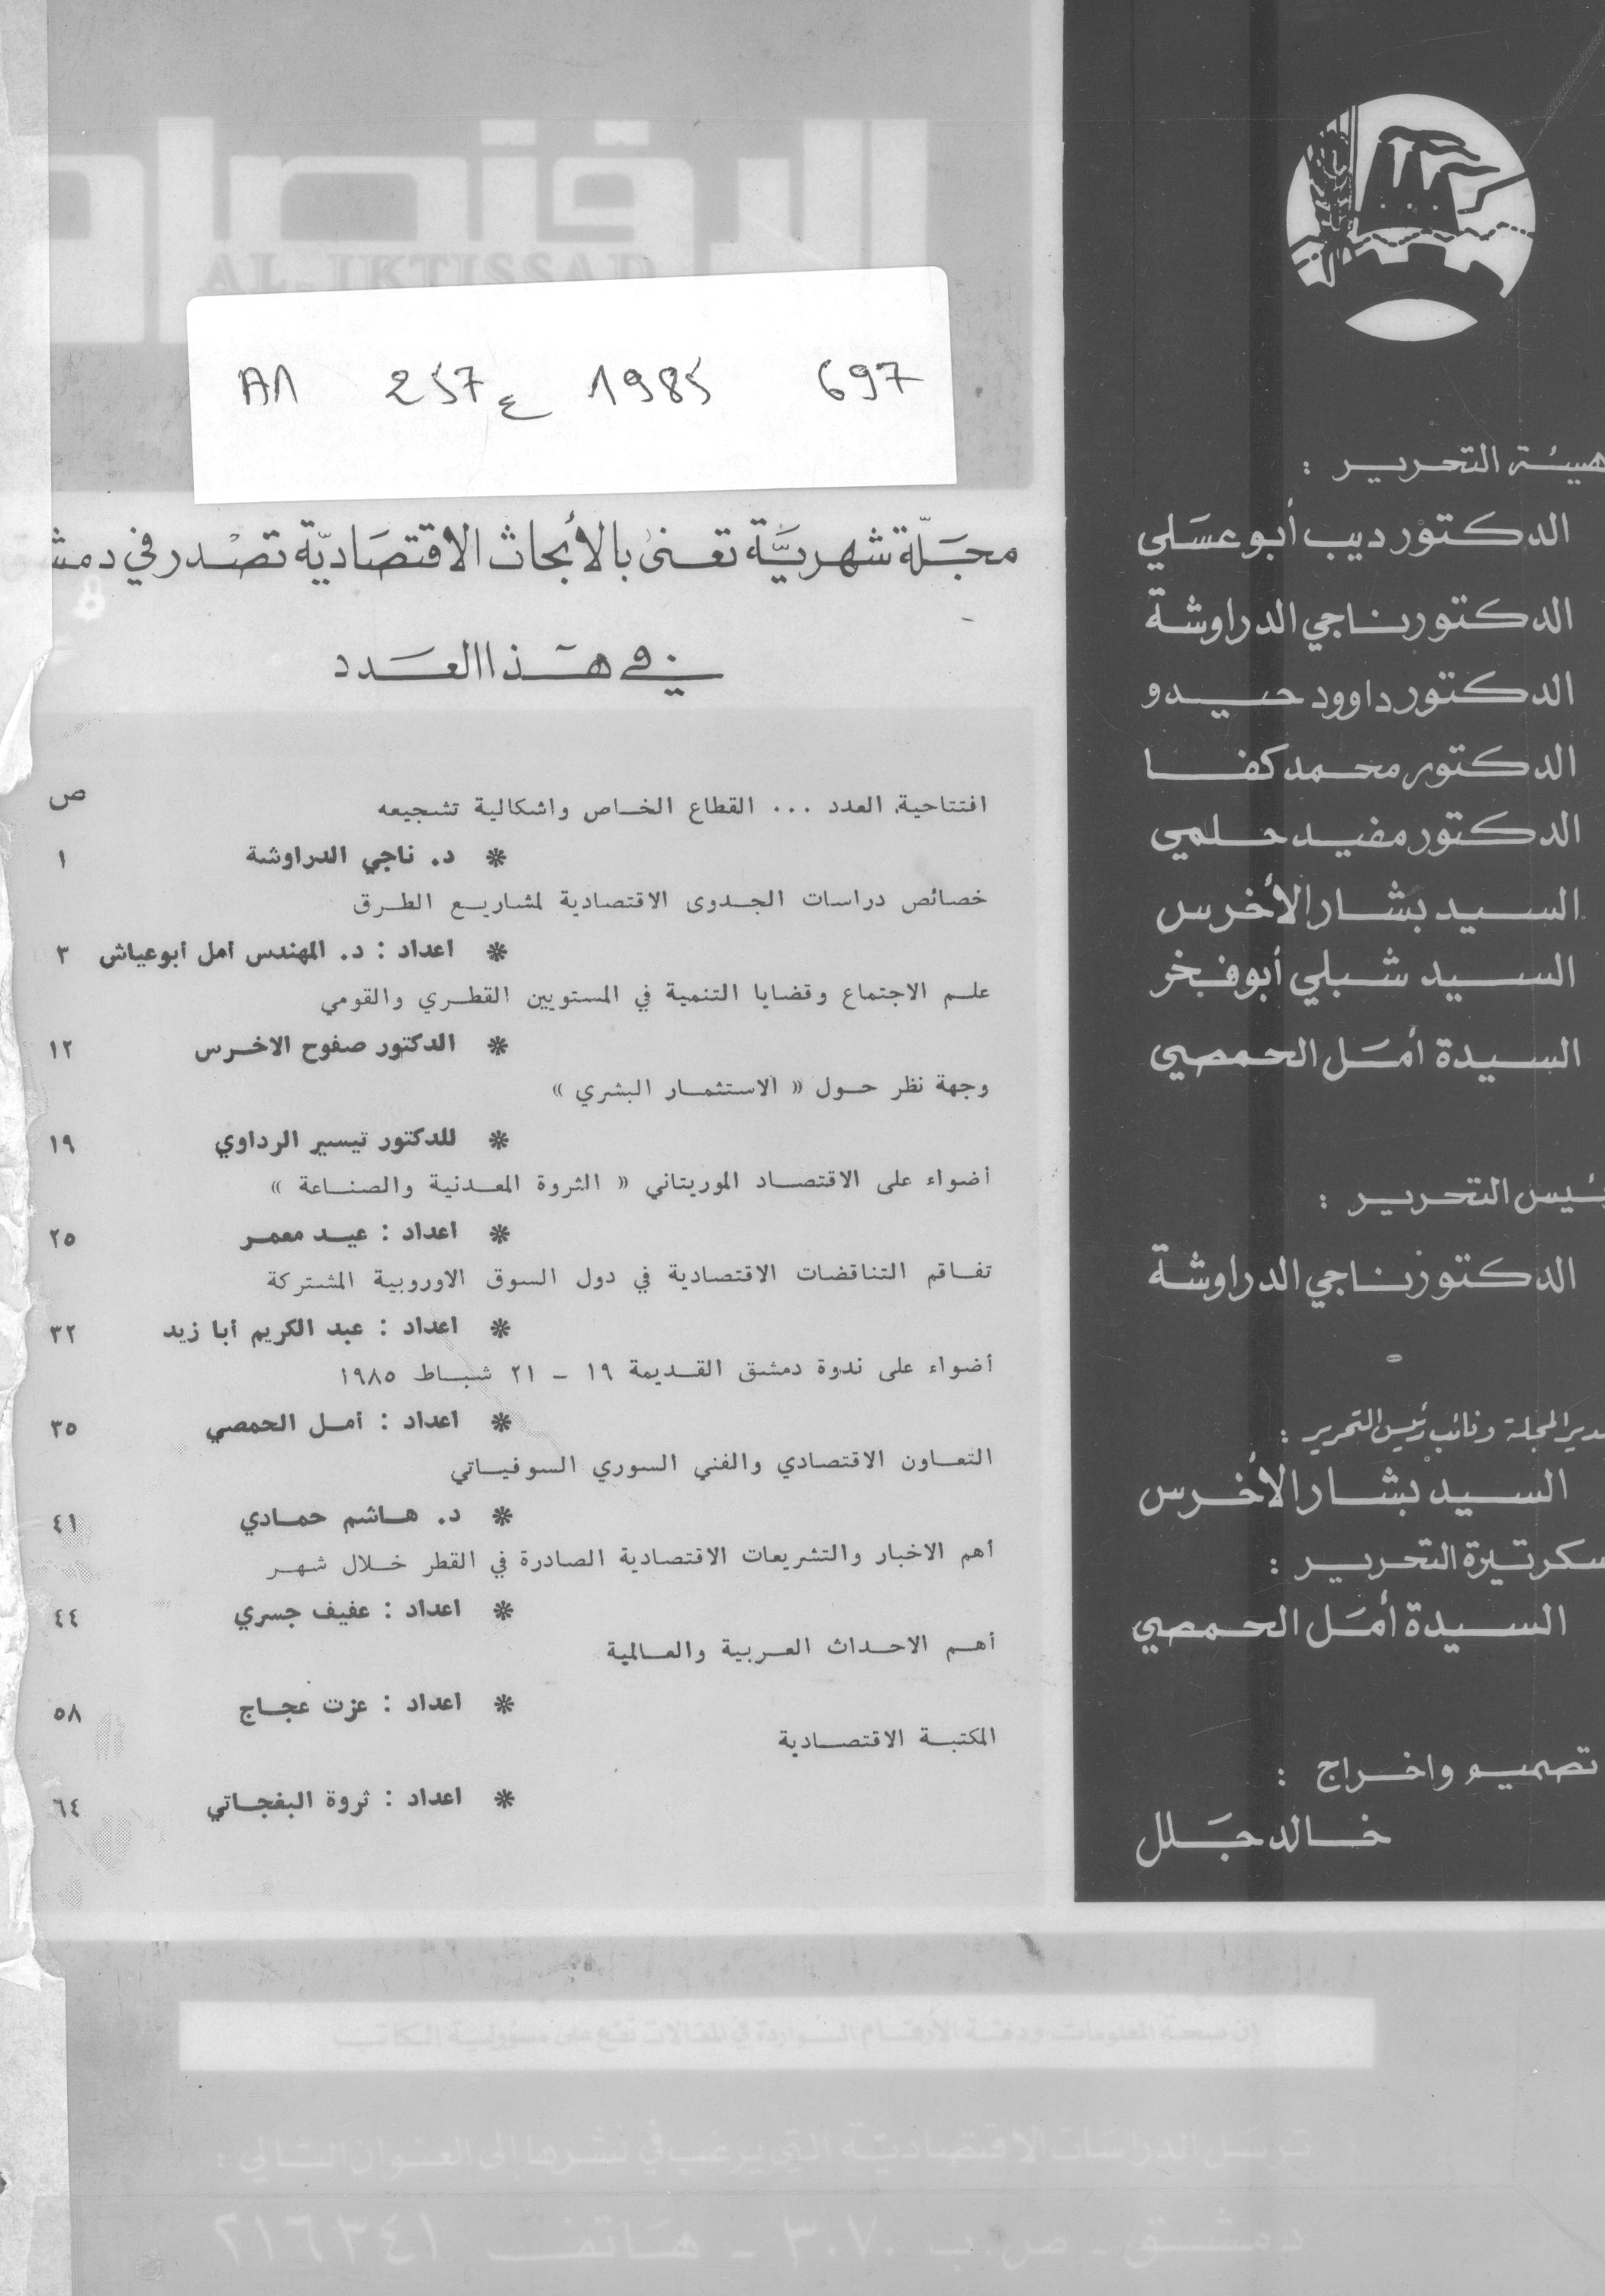 الاقتصاد
AL-IKTISSAD
A11 257 ع 1985 697
مجلة شهرية تعنى بالأبحاث الاقتصادية تصدر في دمش
في هذا العدد
ص
افتتاحية العدد ... القطاع الخاص واشكالية تشجيعه
* د. ناجي الدراوشة ١
خصائص دراسات الجدوى الاقتصادية لمشاريع الطرق
* اعداد : د. المهندس امل ابوعياش ٣
علم الاجتماع وقضايا التنمية في المستويين القطري والقومي
* الدكتور صفوح الاخرس ١٢
وجهة نظر حول « الاستثمار البشري »
* للدكتور تيسير الرداوي ١٩
أضواء على الاقتصاد الموريتاني « الثروة المعدنية والصناعة »
* اعداد : عيد معمر ٢٥
تفاقم التناقضات الاقتصادية في دول السوق الاوروبية المشتركة
* اعداد : عبد الكريم أبا زيد ٣٢
أضواء على ندوة دمشق القديمة ١٩ - ٢١ شباط ١٩٨٥
* اعداد : أمل الحمصي ٣٥
التعاون الاقتصادي والفني السوري السوفياتي
* د. هاشم حمادي ٤١
أهم الاخبار والتشريعات الاقتصادية الصادرة في القطر خلال شهر
* اعداد : عفيف جسري ٤٤
أهم الاحداث العربية والعالمية
* اعداد : عزت عجاج ٥٨
المكتبة الاقتصادية
* اعداد : ثروة البفجاتي ٦٤
هيئة التحرير :
الدكتور ديب أبو عسلي
الدكتور ناجي الدراوشة
الدكتور داوود حيدو
الدكتور محمد كفا
الدكتور مفيد حلمي
السيد بشار الأخرس
السيد شبلي أبو فخر
السيدة أمل الحمصي
ئيس التحرير :
الدكتور ناجي الدراوشة
دير المجلة ونائب رئيس التحرير :
السيد بشار الأخرس
سكرتيرة التحرير :
السيدة أمل الحمصي
تصميم واخراج :
خالد جلل
إن صحة المعلومات ودقة الأرقام الواردة في المقالات تقع على مسؤولية الكاتب
ترسل الدراسات الاقتصادية التي يرغب في نشرها إلى العنوان التالي :
دمشق - ص.ب ٣٠٧٠ - هاتف ٢١٦٣٤١